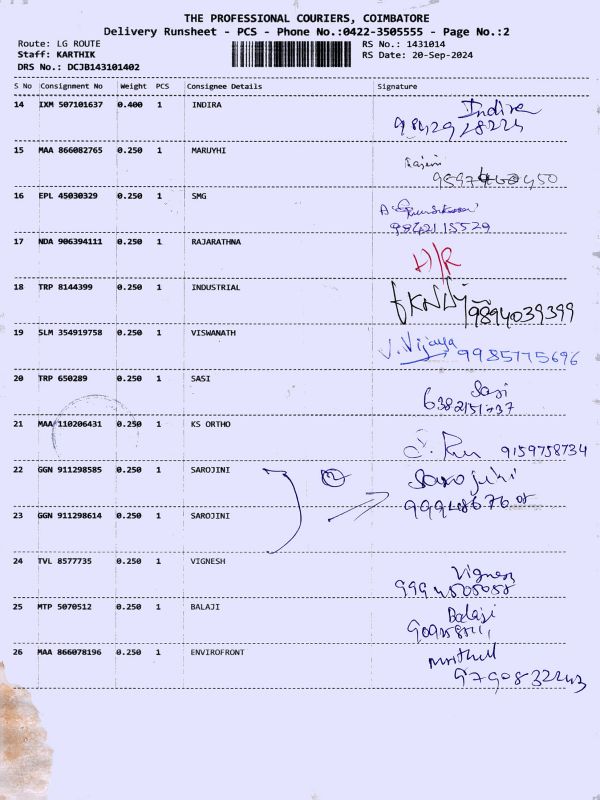 THE PROFESSIONAL COURIERS, COIMBATORE
Delivery Runsheet - PCS - Phone No.:0422-3505555 - Page No.:2
Route: LG ROUTE RS No.: 1431014
Staff: KARTHIK RS Date: 20-Sep-2024
DRS No.: DCJB143101402
S No Consignment No Weight PCS Consignee Details Signature
14 IXM 507101637 0.400 1 INDIRA Indira
15 MAA 866082765 0.250 1 MARUYHI Rajeni
16 EPL 45030329 0.250 1 SMG
9842115529
17 NDA 906394111 0.250 1 RAJARATHNA D/R
18 TRP 8144399 0.250 1 INDUSTRIAL
9894039399
19 SLM 354919758 0.250 1 VISWANATH J. Vijaya 9985775696
20 TRP 650289 0.250 1 SASI Sasi
21 MAA 110206431 0.250 1 KS ORTHO
9159758734
22 GGN 911298585 0.250 1 SAROJINI 2 Sarojini
23 GGN 911298614 0.250 1 SAROJINI
24 TVL 8577735 0.250 1 VIGNESH Vignesh
9994505058
25 MTP 5070512 0.250 1 BALAJI Balaji
26 MAA 866078196 0.250 1 ENVIROFRONT
9790832243